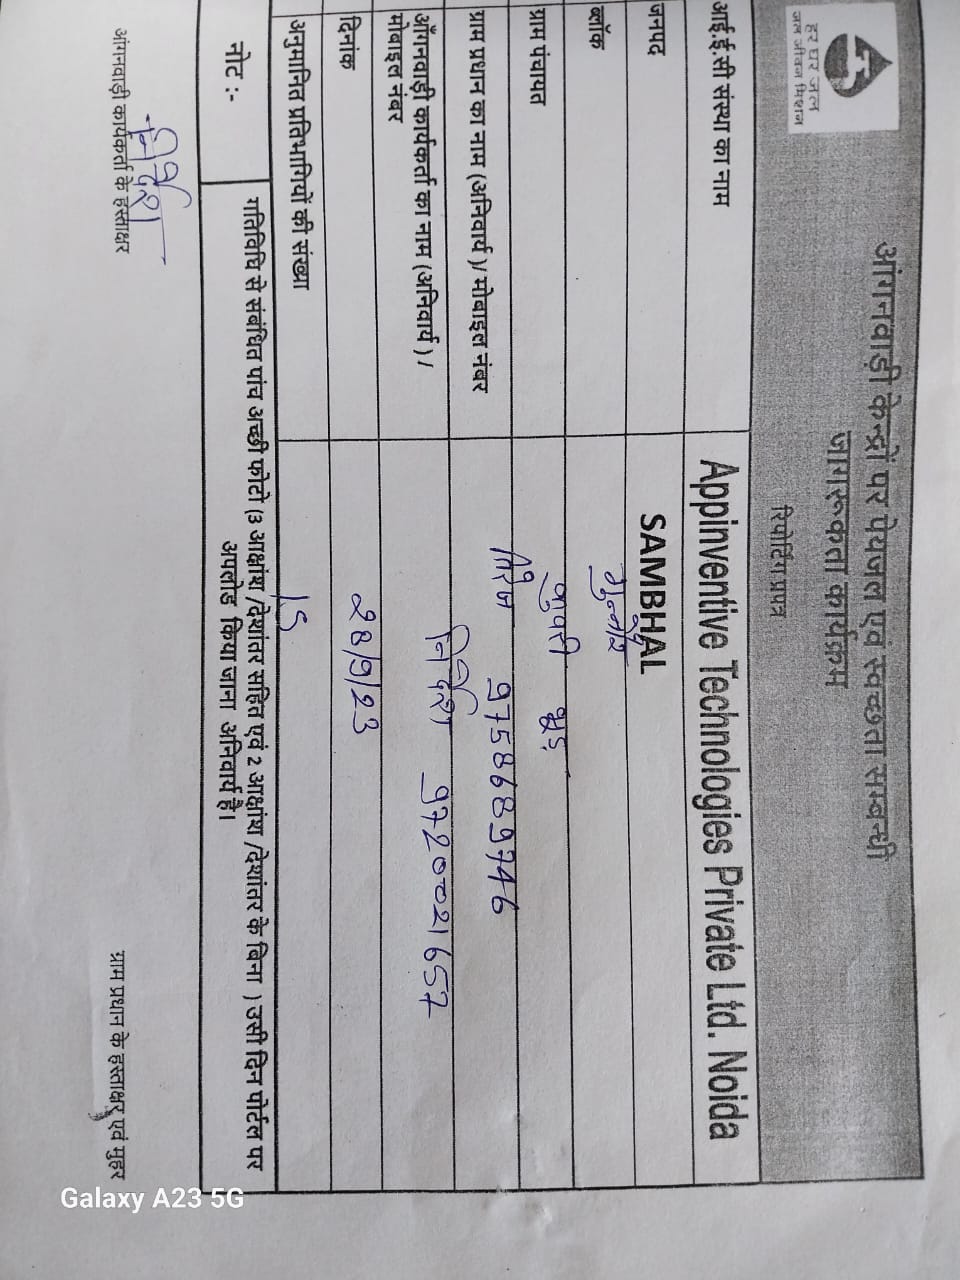 हर घर जल
जल जीवन मिशन
आंगनवाड़ी केन्द्रों पर पेयजल एवं स्वच्छता सम्बन्धी
जागरूकता कार्यक्रम
रिपोर्टिंग प्रपत्र
आई.ई.सी संस्था का नाम Appinventive Technologies Private Ltd. Noida
जनपद SAMBHAL
ब्लॉक गुन्नौर
ग्राम पंचायत
ग्राम प्रधान का नाम (अनिवार्य)/ मोबाइल नंबर 9758689746
आँगनवाड़ी कार्यकर्ता का नाम (अनिवार्य)/ निर्देश 9720021657
मोबाइल नंबर
दिनांक 28/9/23
अनुमानित प्रतिभागियों की संख्या 15
नोट :- गतिविधि से संबंधित पांच अच्छी फोटो (3 आक्षांश /देशांतर सहित एवं 2 आक्षांश /देशांतर के बिना ) उसी दिन पोर्टल पर
अपलोड किया जाना अनिवार्य है।
निर्देश
आंगनवाड़ी कार्यकर्ता के हस्ताक्षर ग्राम प्रधान के हस्ताक्षर एवं मुहर
Galaxy A23 5G